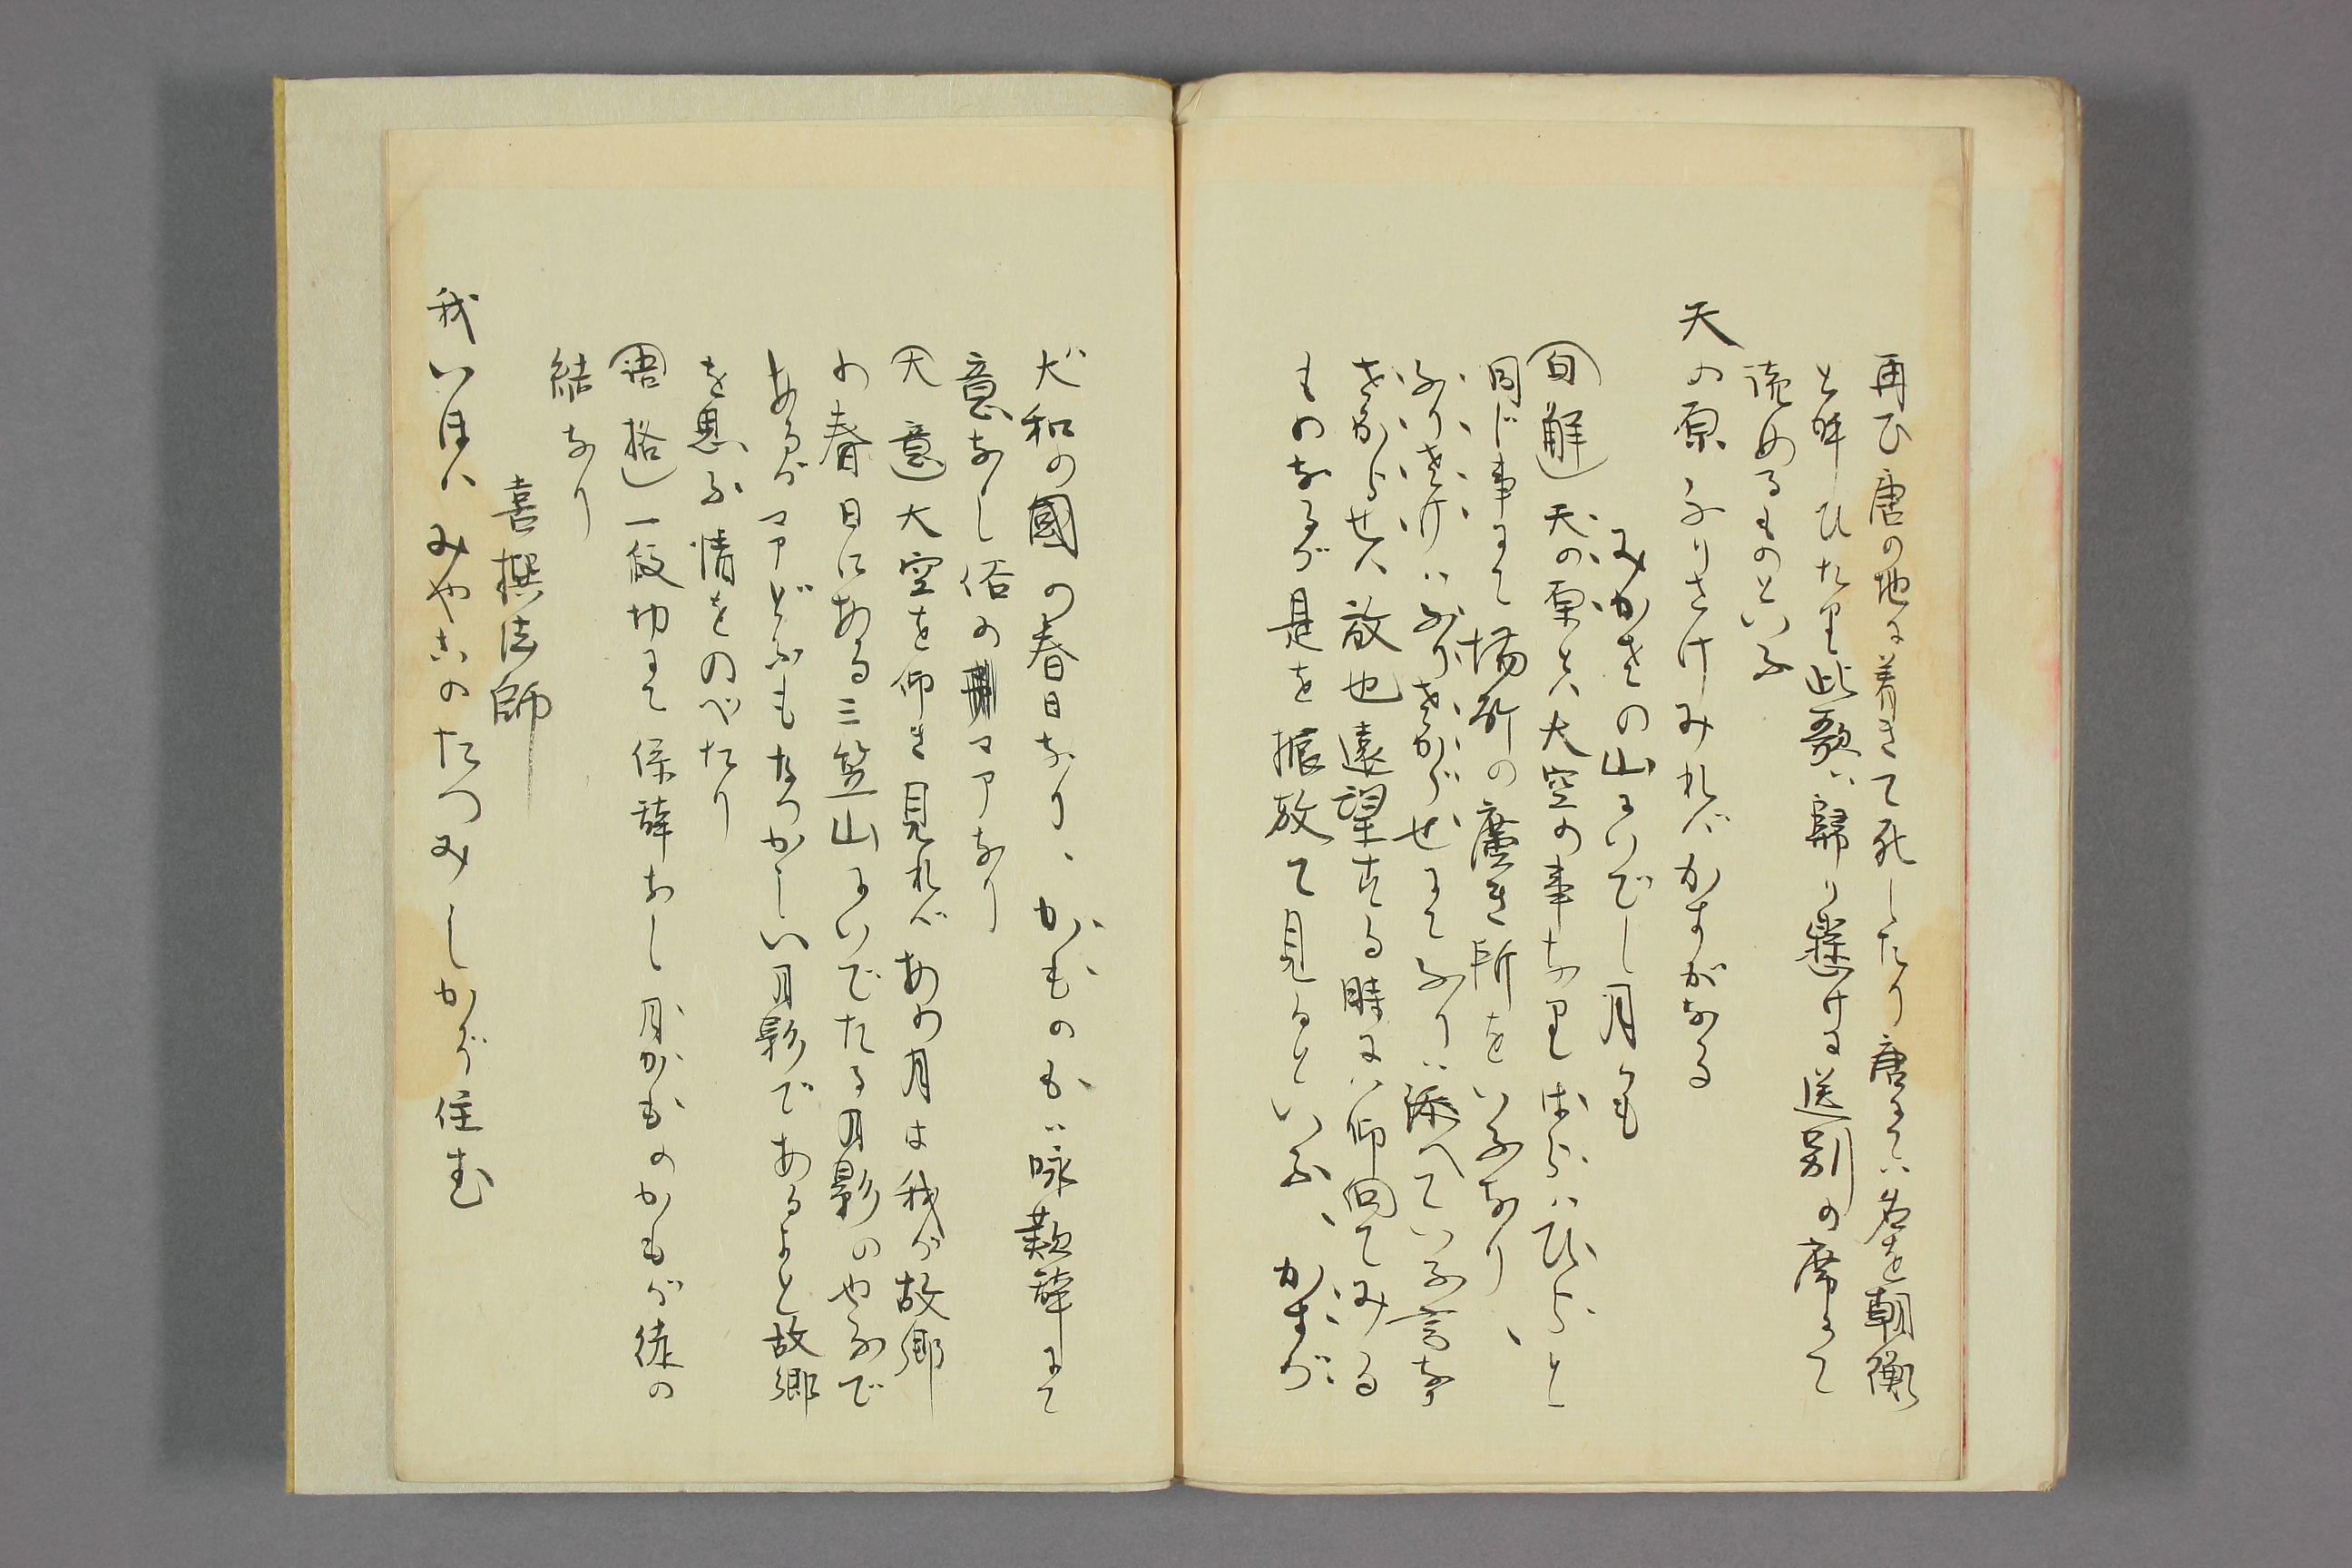 再び唐の地に着きて死したり唐にてハ名を朝衡
と呼ひたり此歌ハ歸り懸ける送別の席にて
詠めるものといふ
天の原ふりさけみれバかすがなる
みかさの山にいでし月かも
句解 天の原とハ大空の事なり はらハひらと
同じ事にて場所の廣き所をいふなり、
ふりさけハふりさからせにてふりハ添へていふ言な
さからせハ放也遠望する時にハ仰向てみる
ものなるが是を振放て見るといふ、かすが
大和の國の春日なり、かものもハ咏歎辞にて
意なし俗のマアなり
大意 大空を仰き見れバあの月は我が故郷
の春日にある三笠山にいでたる月影のやうで
あるがマアどふもなつかしい月影であるよと故郷
を思ふ情をのべたり
語格 一段切にて係辞なし月かものかもが徒の
結なり
喜撰法師
我いほハみやこのたつみしかぞ住む